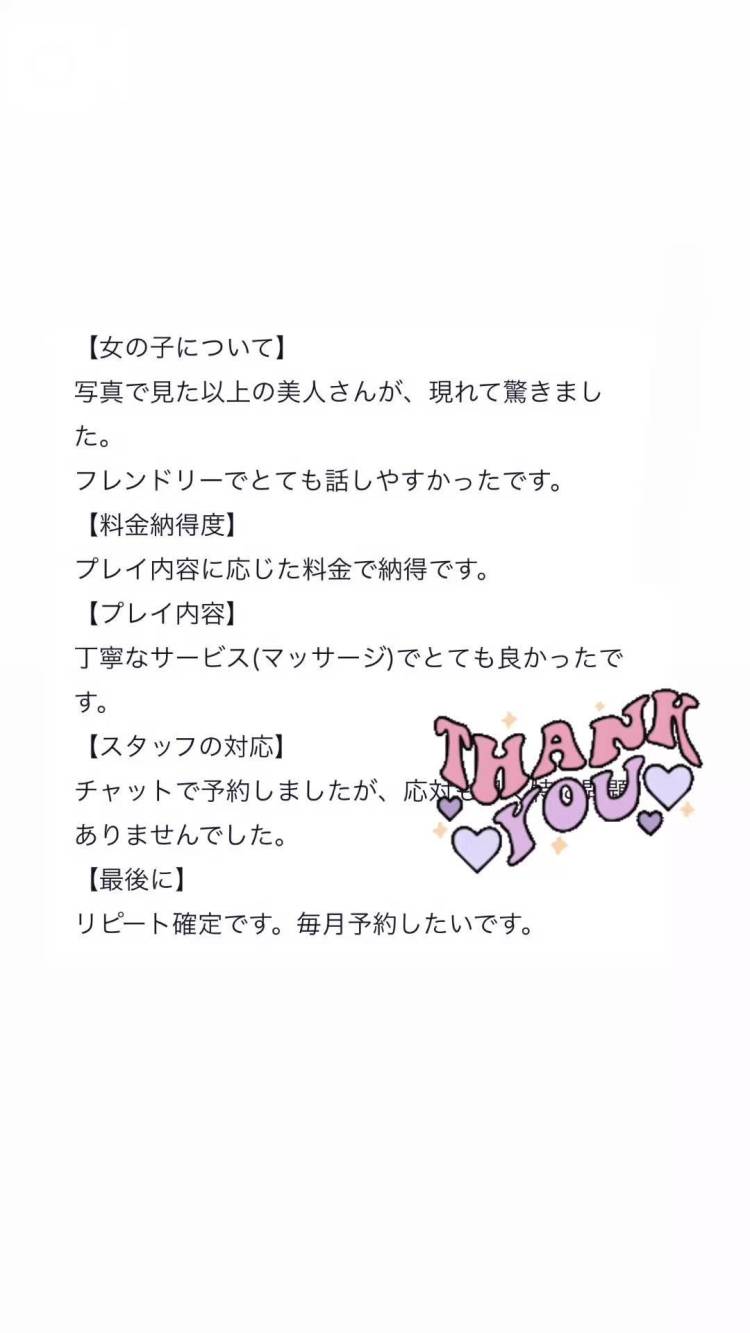 【女の子について】
写真で見た以上の美人さんが、現れて驚きまし
た。
フレンドリーでとても話しやすかったです。
【料金納得度】
プレイ内容に応じた料金で納得です。
【プレイ内容】
丁寧なサービス(マッサージ)でとても良かったで
す。
【スタッフの対応】
チャットで予約しましたが、応対も
ありませんでした。
【最後に】
リピート確定です。毎月予約したいです。
THANK
YOU